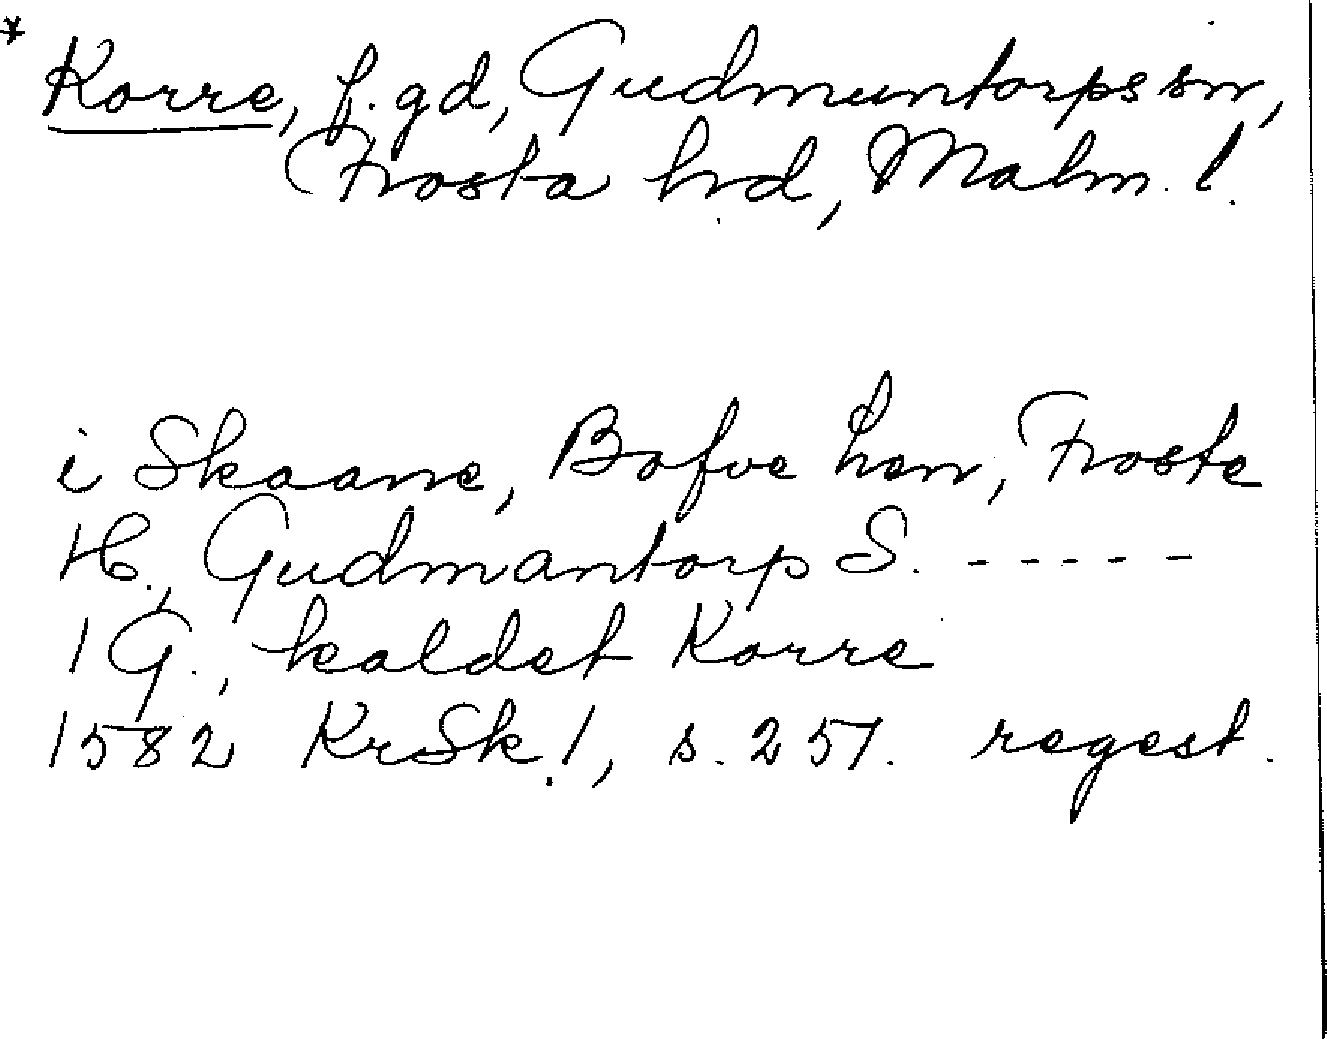 * Korre, f. gd, Gudmuntorps sn,
Frosta hd, Malm. l.
i Skaane, Bofve Len, Froste
H., Gudmantorp S. -----
1 G., kaldet Korre
1582 KrSk. 1, s. 257. regest.